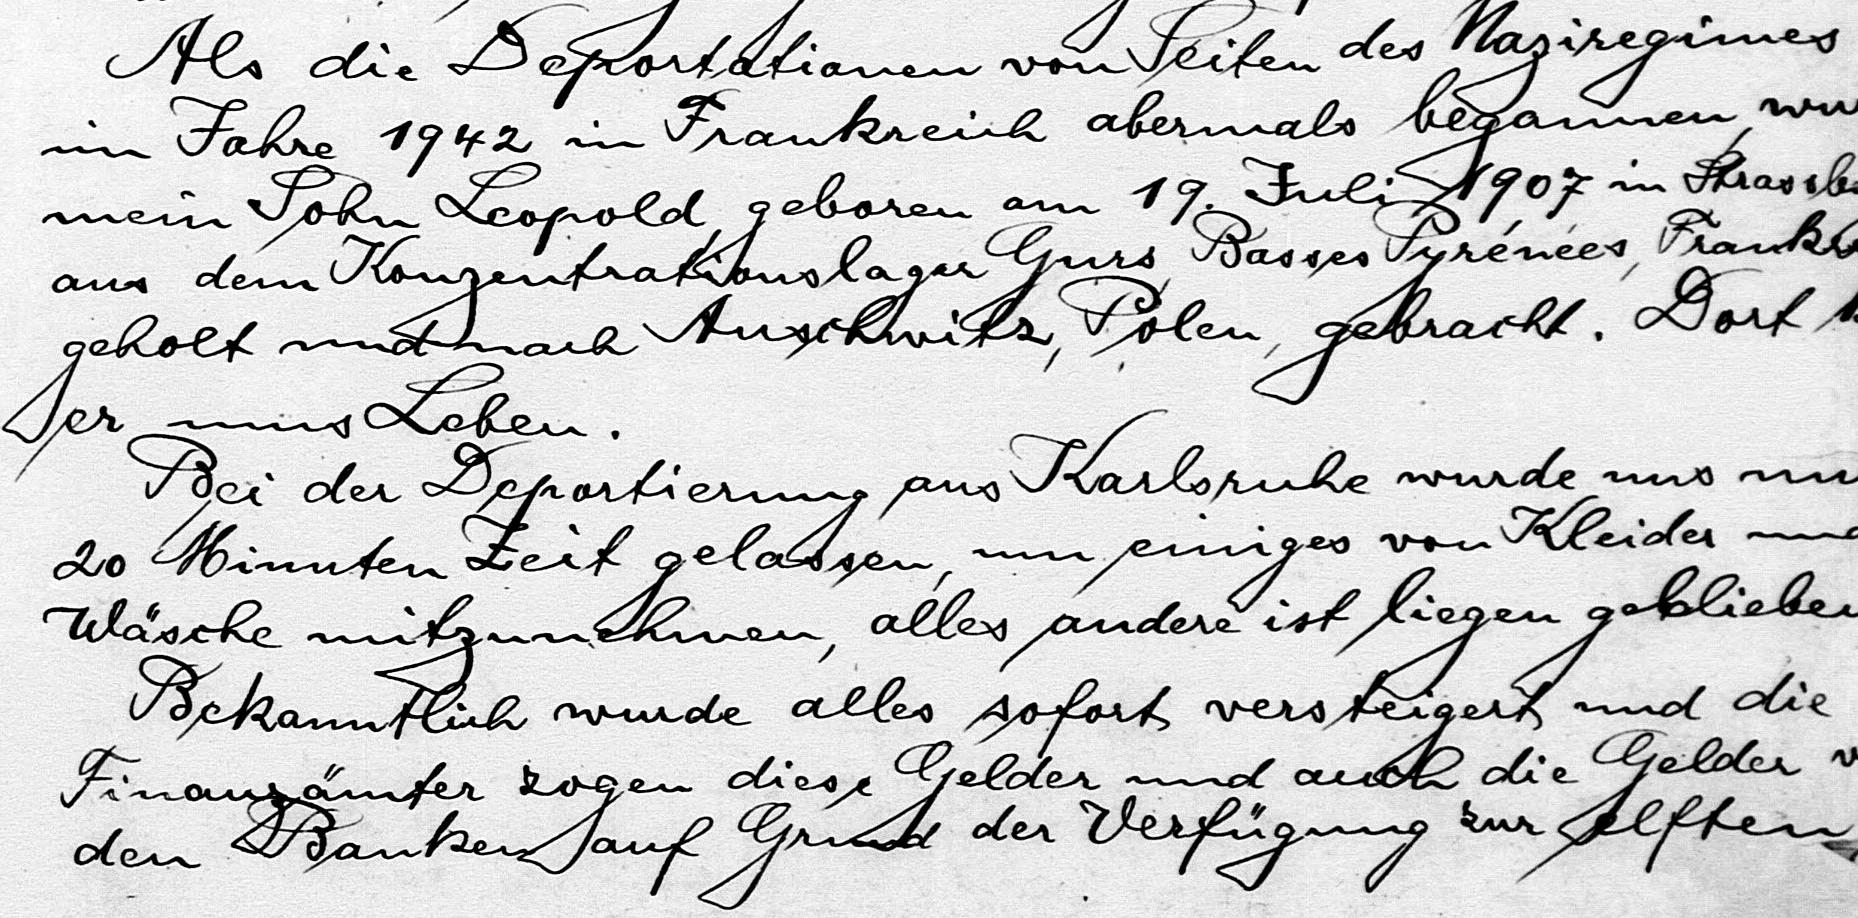 Als die Deportationen von Seiten des Naziregimes
im Jahre 1942 in Frankreich abermals begannen, wur
mein Sohn Leopold, geboren am 19. Juli 1907 in Strassb
aus dem Konzentrationslager Gurs, Basses Pyrénées, Frankr
geholt und nach Auschwitz, Polen, gebracht. Dort
er ums Leben.
Bei der Deportierung aus Karlsruhe wurde uns nu
20 Minuten Zeit gelassen, um einiges von Kleider und
Wäsche mitzunehmen, alles andere ist liegen geblieben
Bekanntlich wurde alles sofort versteigert und die
Finanzämter zogen diese Gelder und auch die Gelder v
den Banken auf Grund der Verfügung zur elften